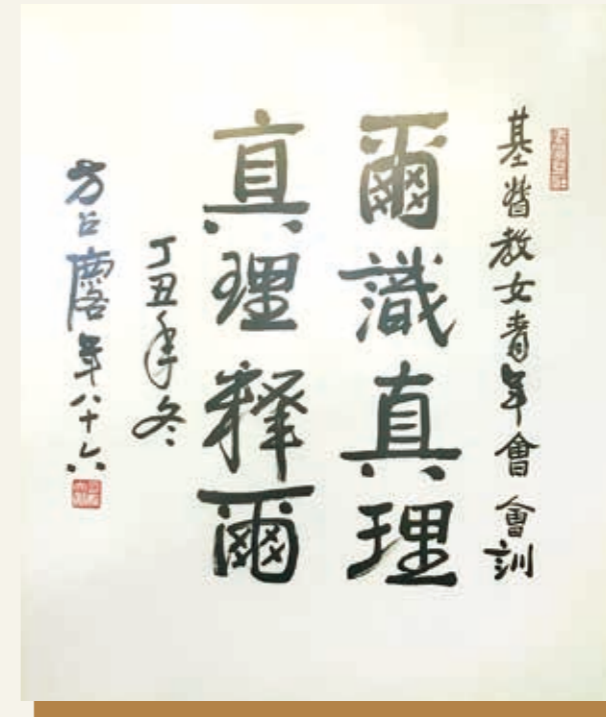 基督教女青年會 會訓
爾識真理
真理釋爾
丁丑年冬
方召麐年八十六